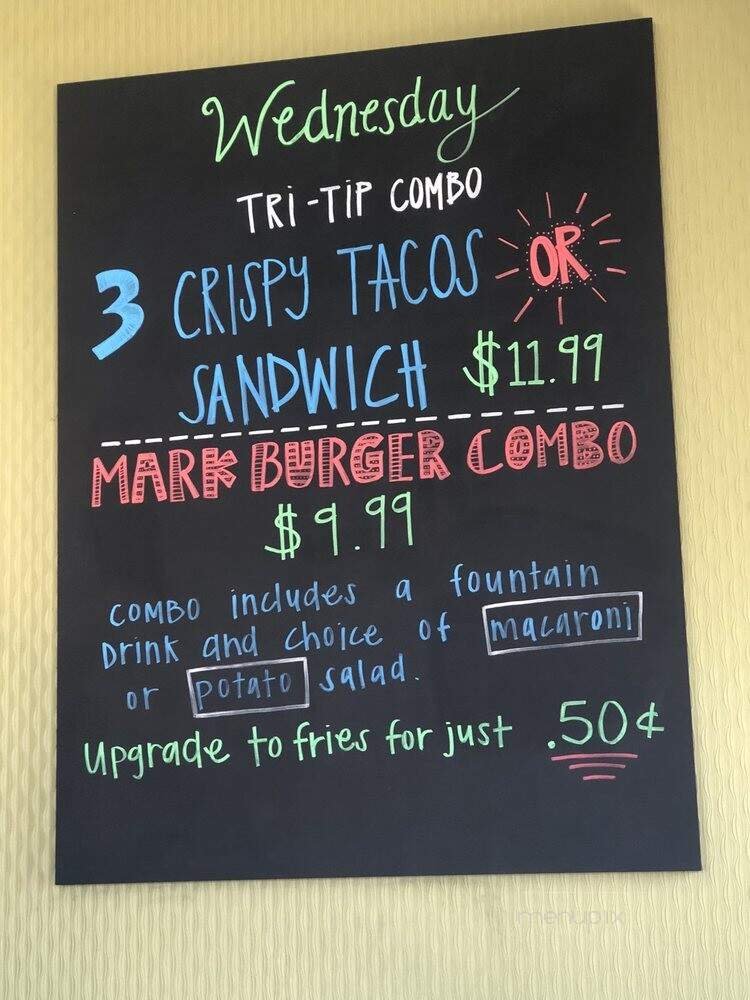 Wednesday
TRi-TiP COMBO
3 CRISPY TACOS OR
SANDWICH $11.99
MARK BURGER COMBO
$9.99
COMBO includes a fountain
Drink and choice of macaroni
or potato salad.
Upgrade to fries for just .50¢
menupix